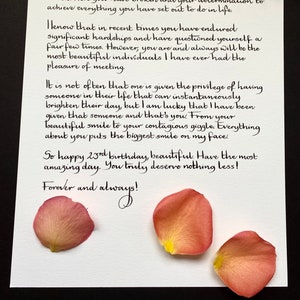 achieve everything you have set out to do in life.
I know that in recent times you have endured
significant hardships and have questioned yourself a
fair few times. However, you are and always will be the
most beautiful individuals I have ever had the
pleasure of meeting.
It is not often that one is given the privilege of having
someone in their life that can instantaneously
brighten their day, but I am lucky that I have been
given that someone and that's you. From your
beautiful smile to your contagious giggle. Everything
about you puts the biggest smile on my face.
So happy 23rd birthday, beautiful. Have the most
amazing day. You truly deserve nothing less!
Forever and always!